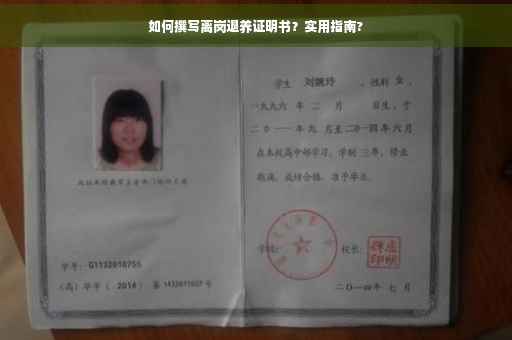 如何撰写离岗退养证明书？实用指南?
学生 刘婉玲 ，性别 女 ，
一九九六 年 二 月 日生，于
二〇一一年九 月至二〇一四年六月
在本校高中部学习，学制 三年，修业
期满，成绩合格，准予毕业。
学校：
校长：
学号：G1132010755
（高）毕字（ 2014 ）第 1432011027 号
二〇一四年 七 月